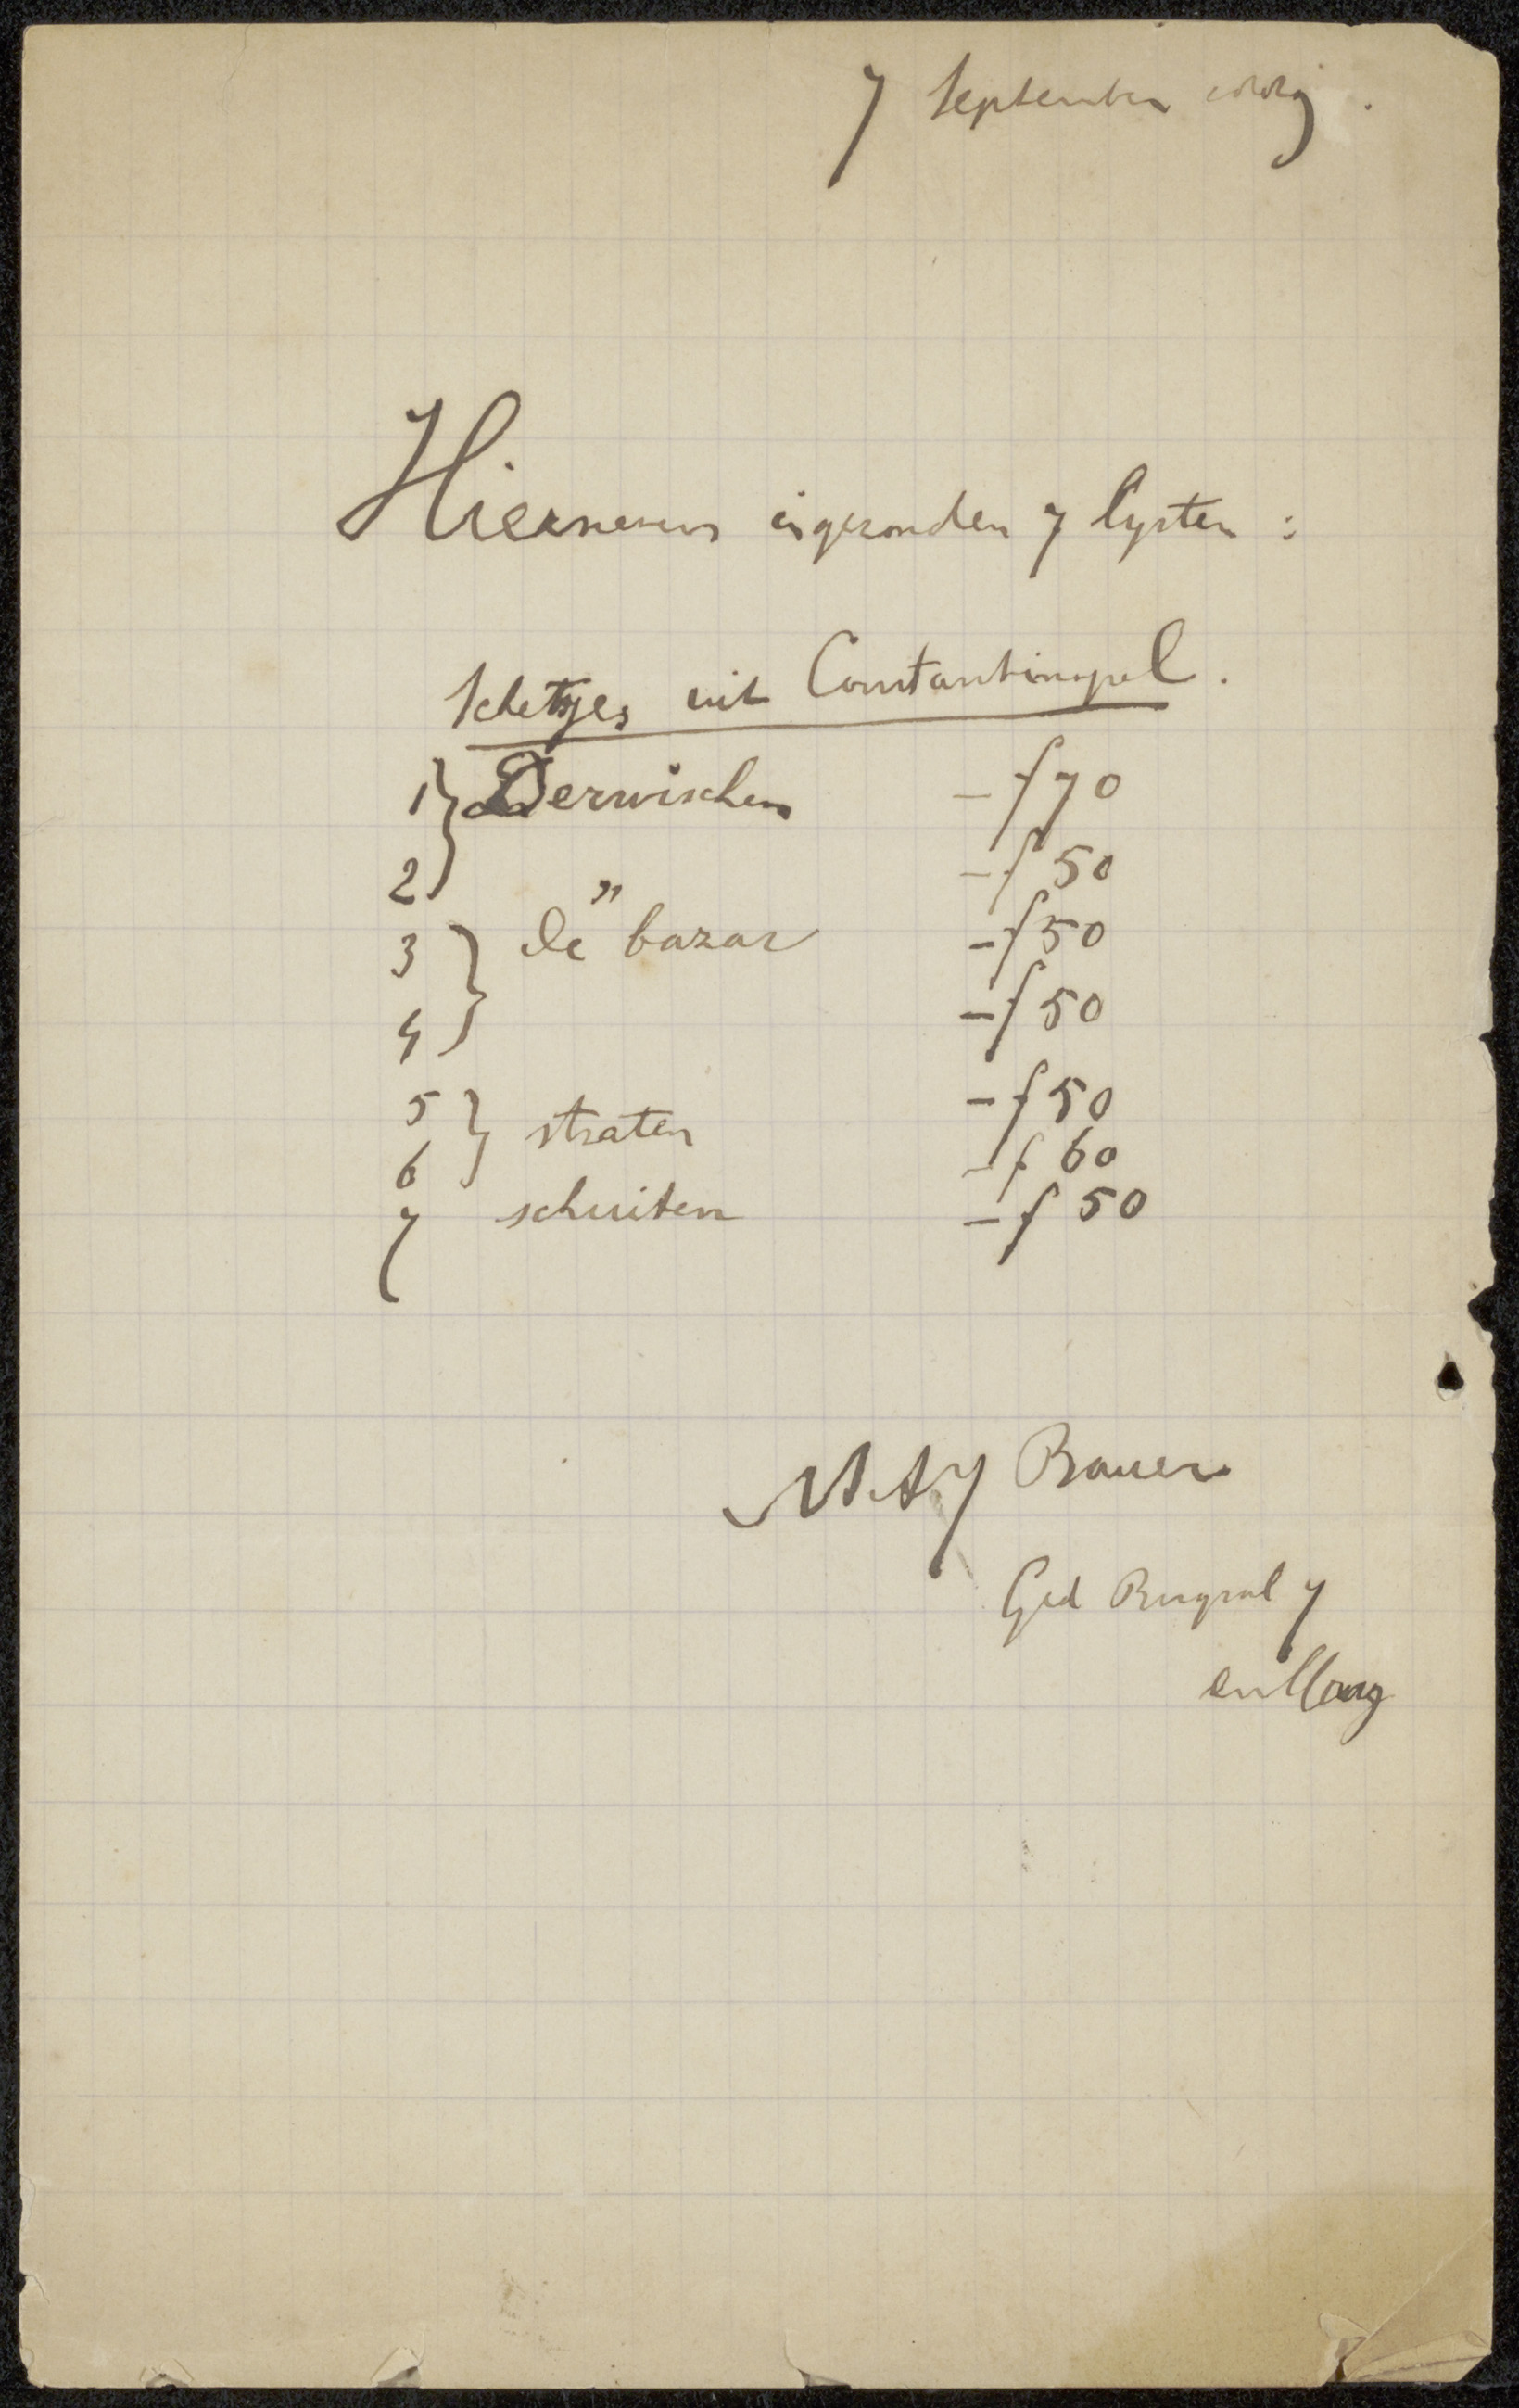 7 September 1889.
Hiernevens ingezonden 7 lysten :
Schetsjes uit Constantinopel.
1 } Derwischen - f 70
2 } " - f 50
3 } de bazar - f 50
4 } - f 50
5 } straten - f 50
6 } - f 60
7 schuiten - f 50
M.A.J Bauer
Ged Burgwal 7